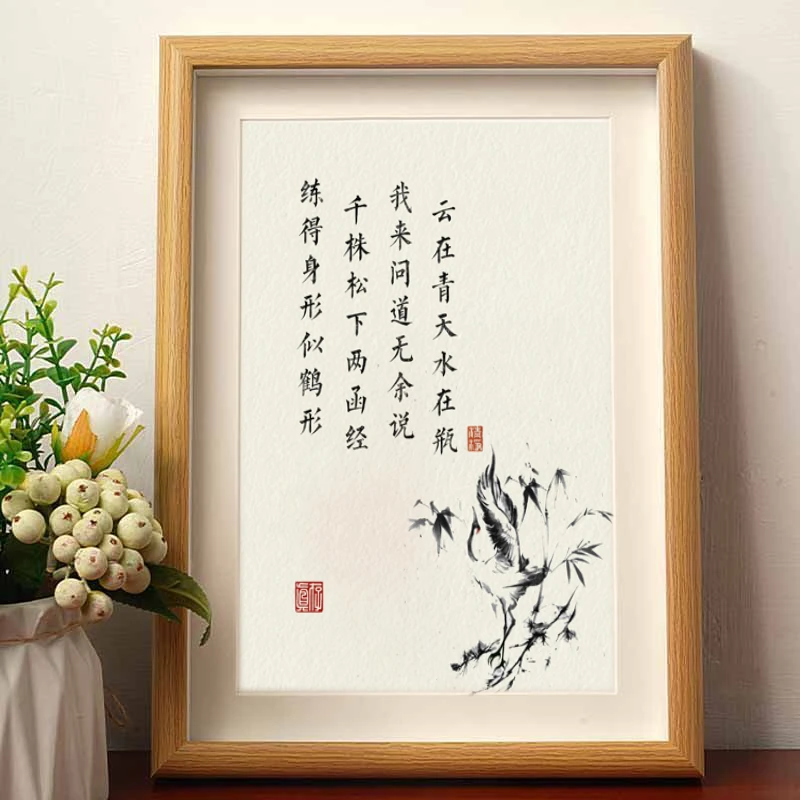 练得身形似鹤形
千株松下两函经
我来问道无余说
云在青天水在瓶
存真